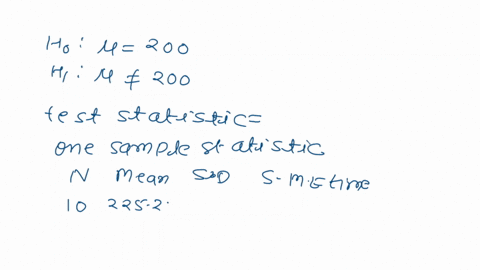 H₀: μ = 200
H₁: μ ≠ 200
test statistic=
one sample statistic
N Mean SD
10 225.2